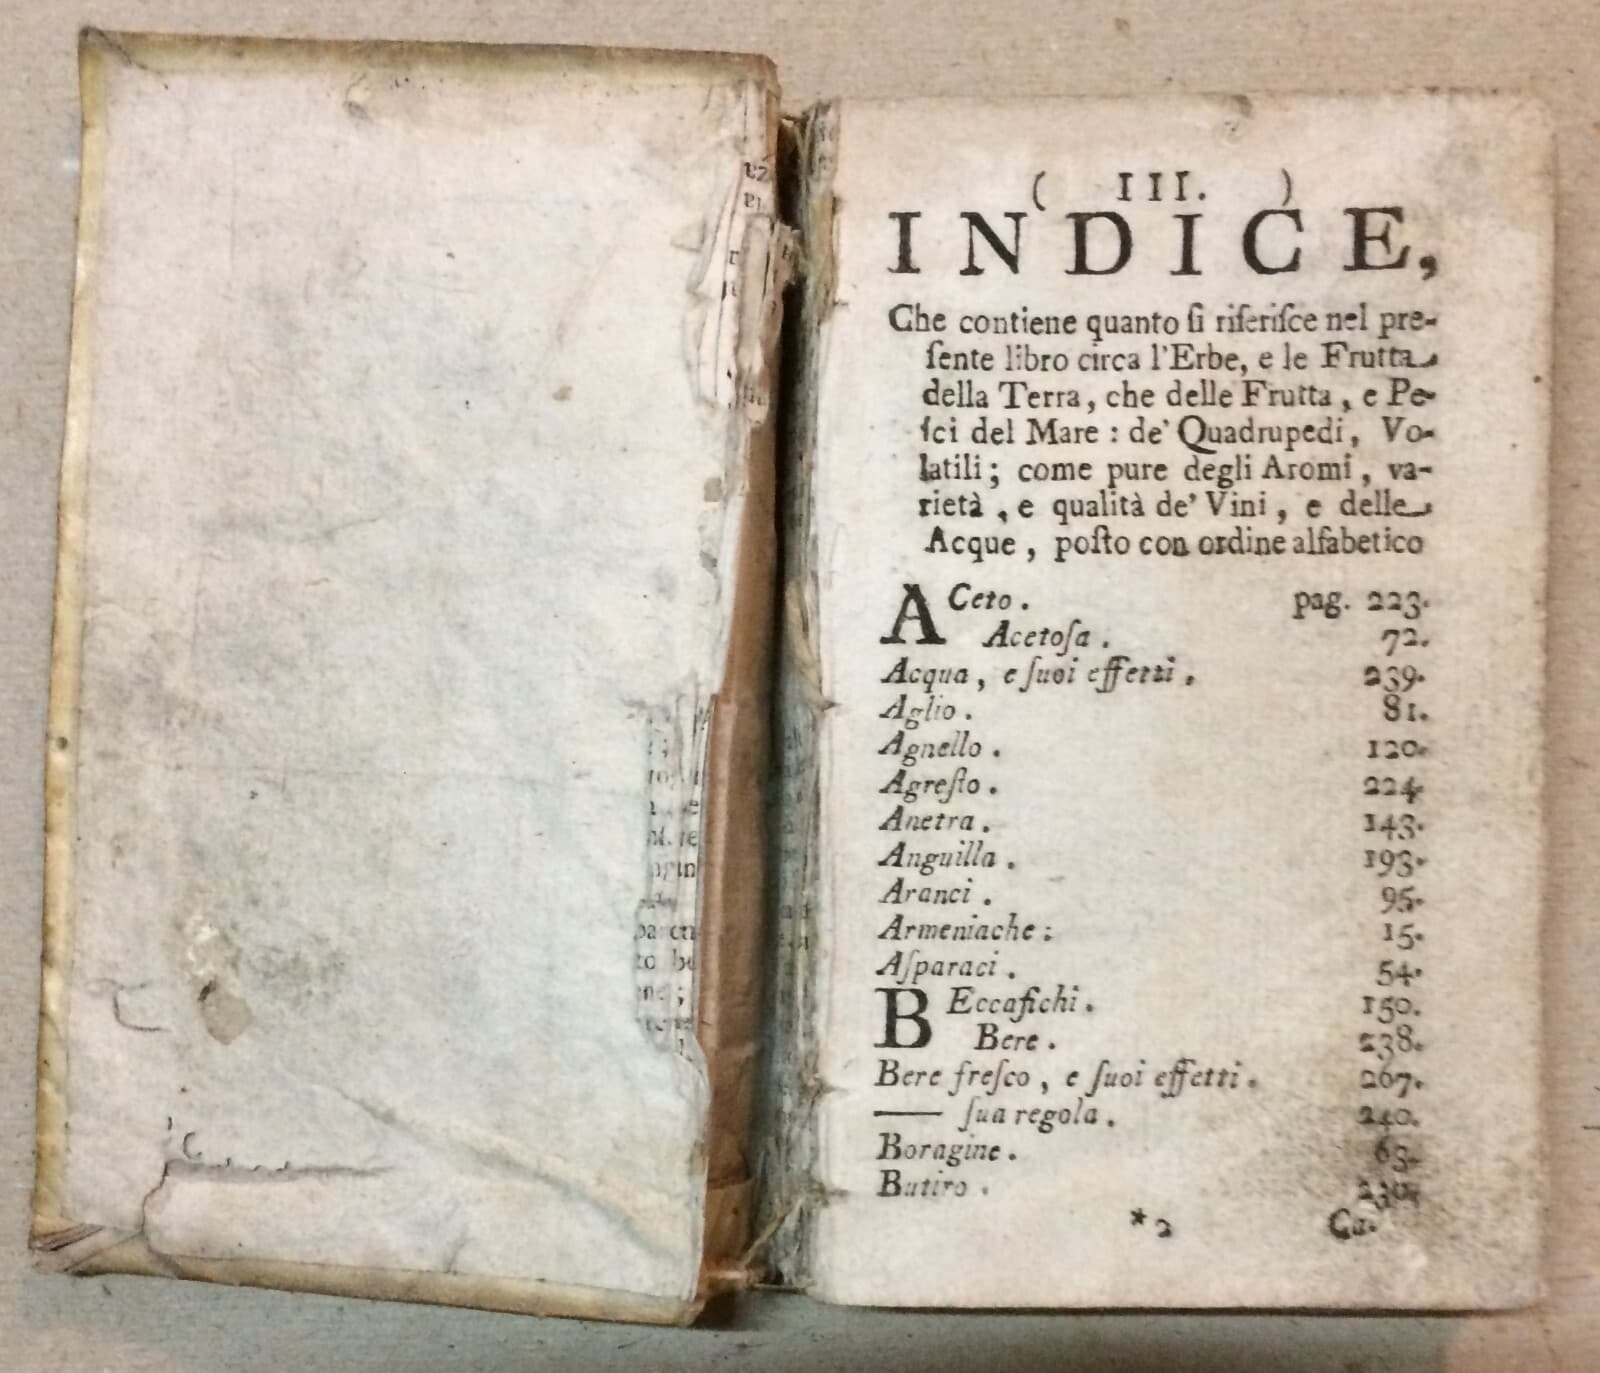 ( III. )
INDICE,
Che contiene quanto ſi riferiſce nel pre-
ſente libro circa l'Erbe, e le Frutta
della Terra, che delle Frutta, e Pe-
ſci del Mare: de' Quadrupedi, Vo-
latili; come pure degli Aromi, va-
rietà, e qualità de' Vini, e delle
Acque, poſto con ordine alfabetico
ACeto. pag. 223.
Acetoſa. 72.
Acqua, e ſuoi effetti. 239.
Aglio. 81.
Agnello. 120.
Agreſto. 224.
Anetra. 143.
Anguilla. 193.
Aranci. 95.
Armeniache: 15.
Aſparaci. 54.
BEccafichi. 150.
Bere. 238.
Bere freſco, e ſuoi effetti. 267.
—— ſua regola. 240.
Boragine. 63.
Butiro. 230.
*2 Ca.